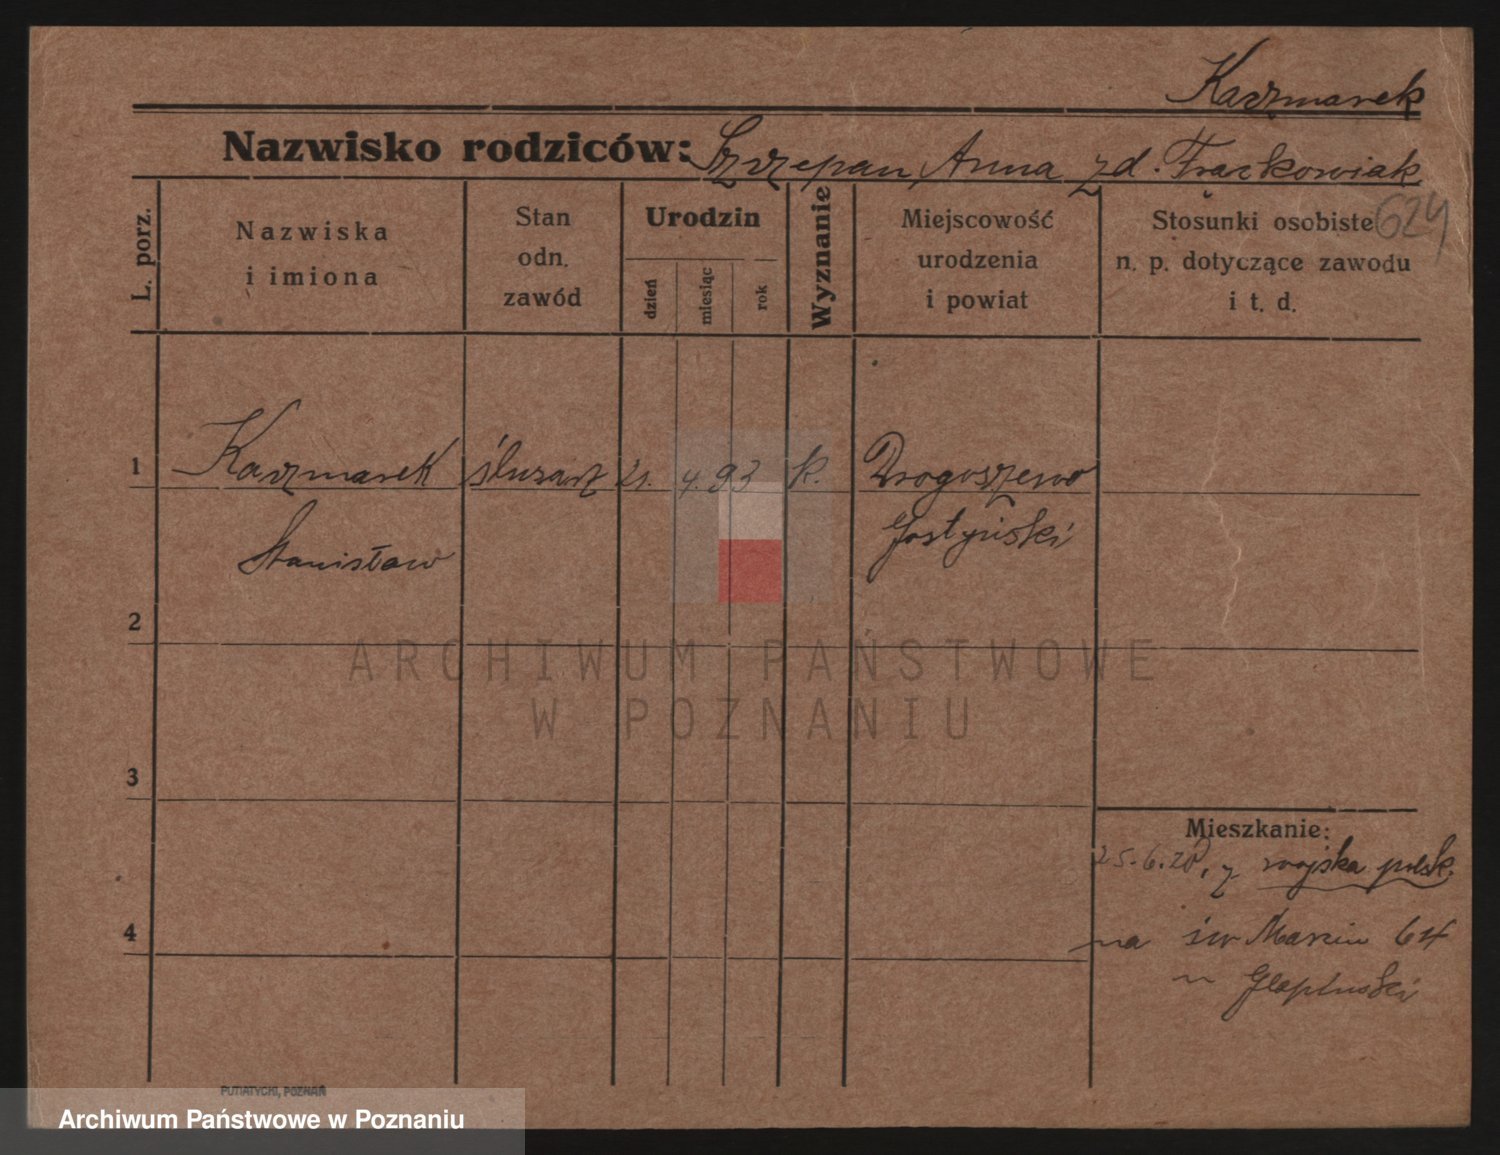 Kaczmarek
Nazwisko rodziców: Szczepan, Anna zd. Frackowiak
624
L. porz.
Nazwiska
i imiona
Stan
odn.
zawód
Urodzin
dzień
miesiąc
rok
Wyznanie
Miejscowość
urodzenia
i powiat
Stosunki osobiste
n. p. dotyczące zawodu
i t. d.
1 Kaczmarek ślusarz 21. 4. 93 k. Drogoszewo
Stanisław Gostyński
2
ARCHIWUM PAŃSTWOWE
W POZNANIU
3
Mieszkanie:
25.6.20, z wojska polsk.
4
na św Marcin 64
u
PUTIATYCKI, POZNAŃ
Archiwum Państwowe w Poznaniu